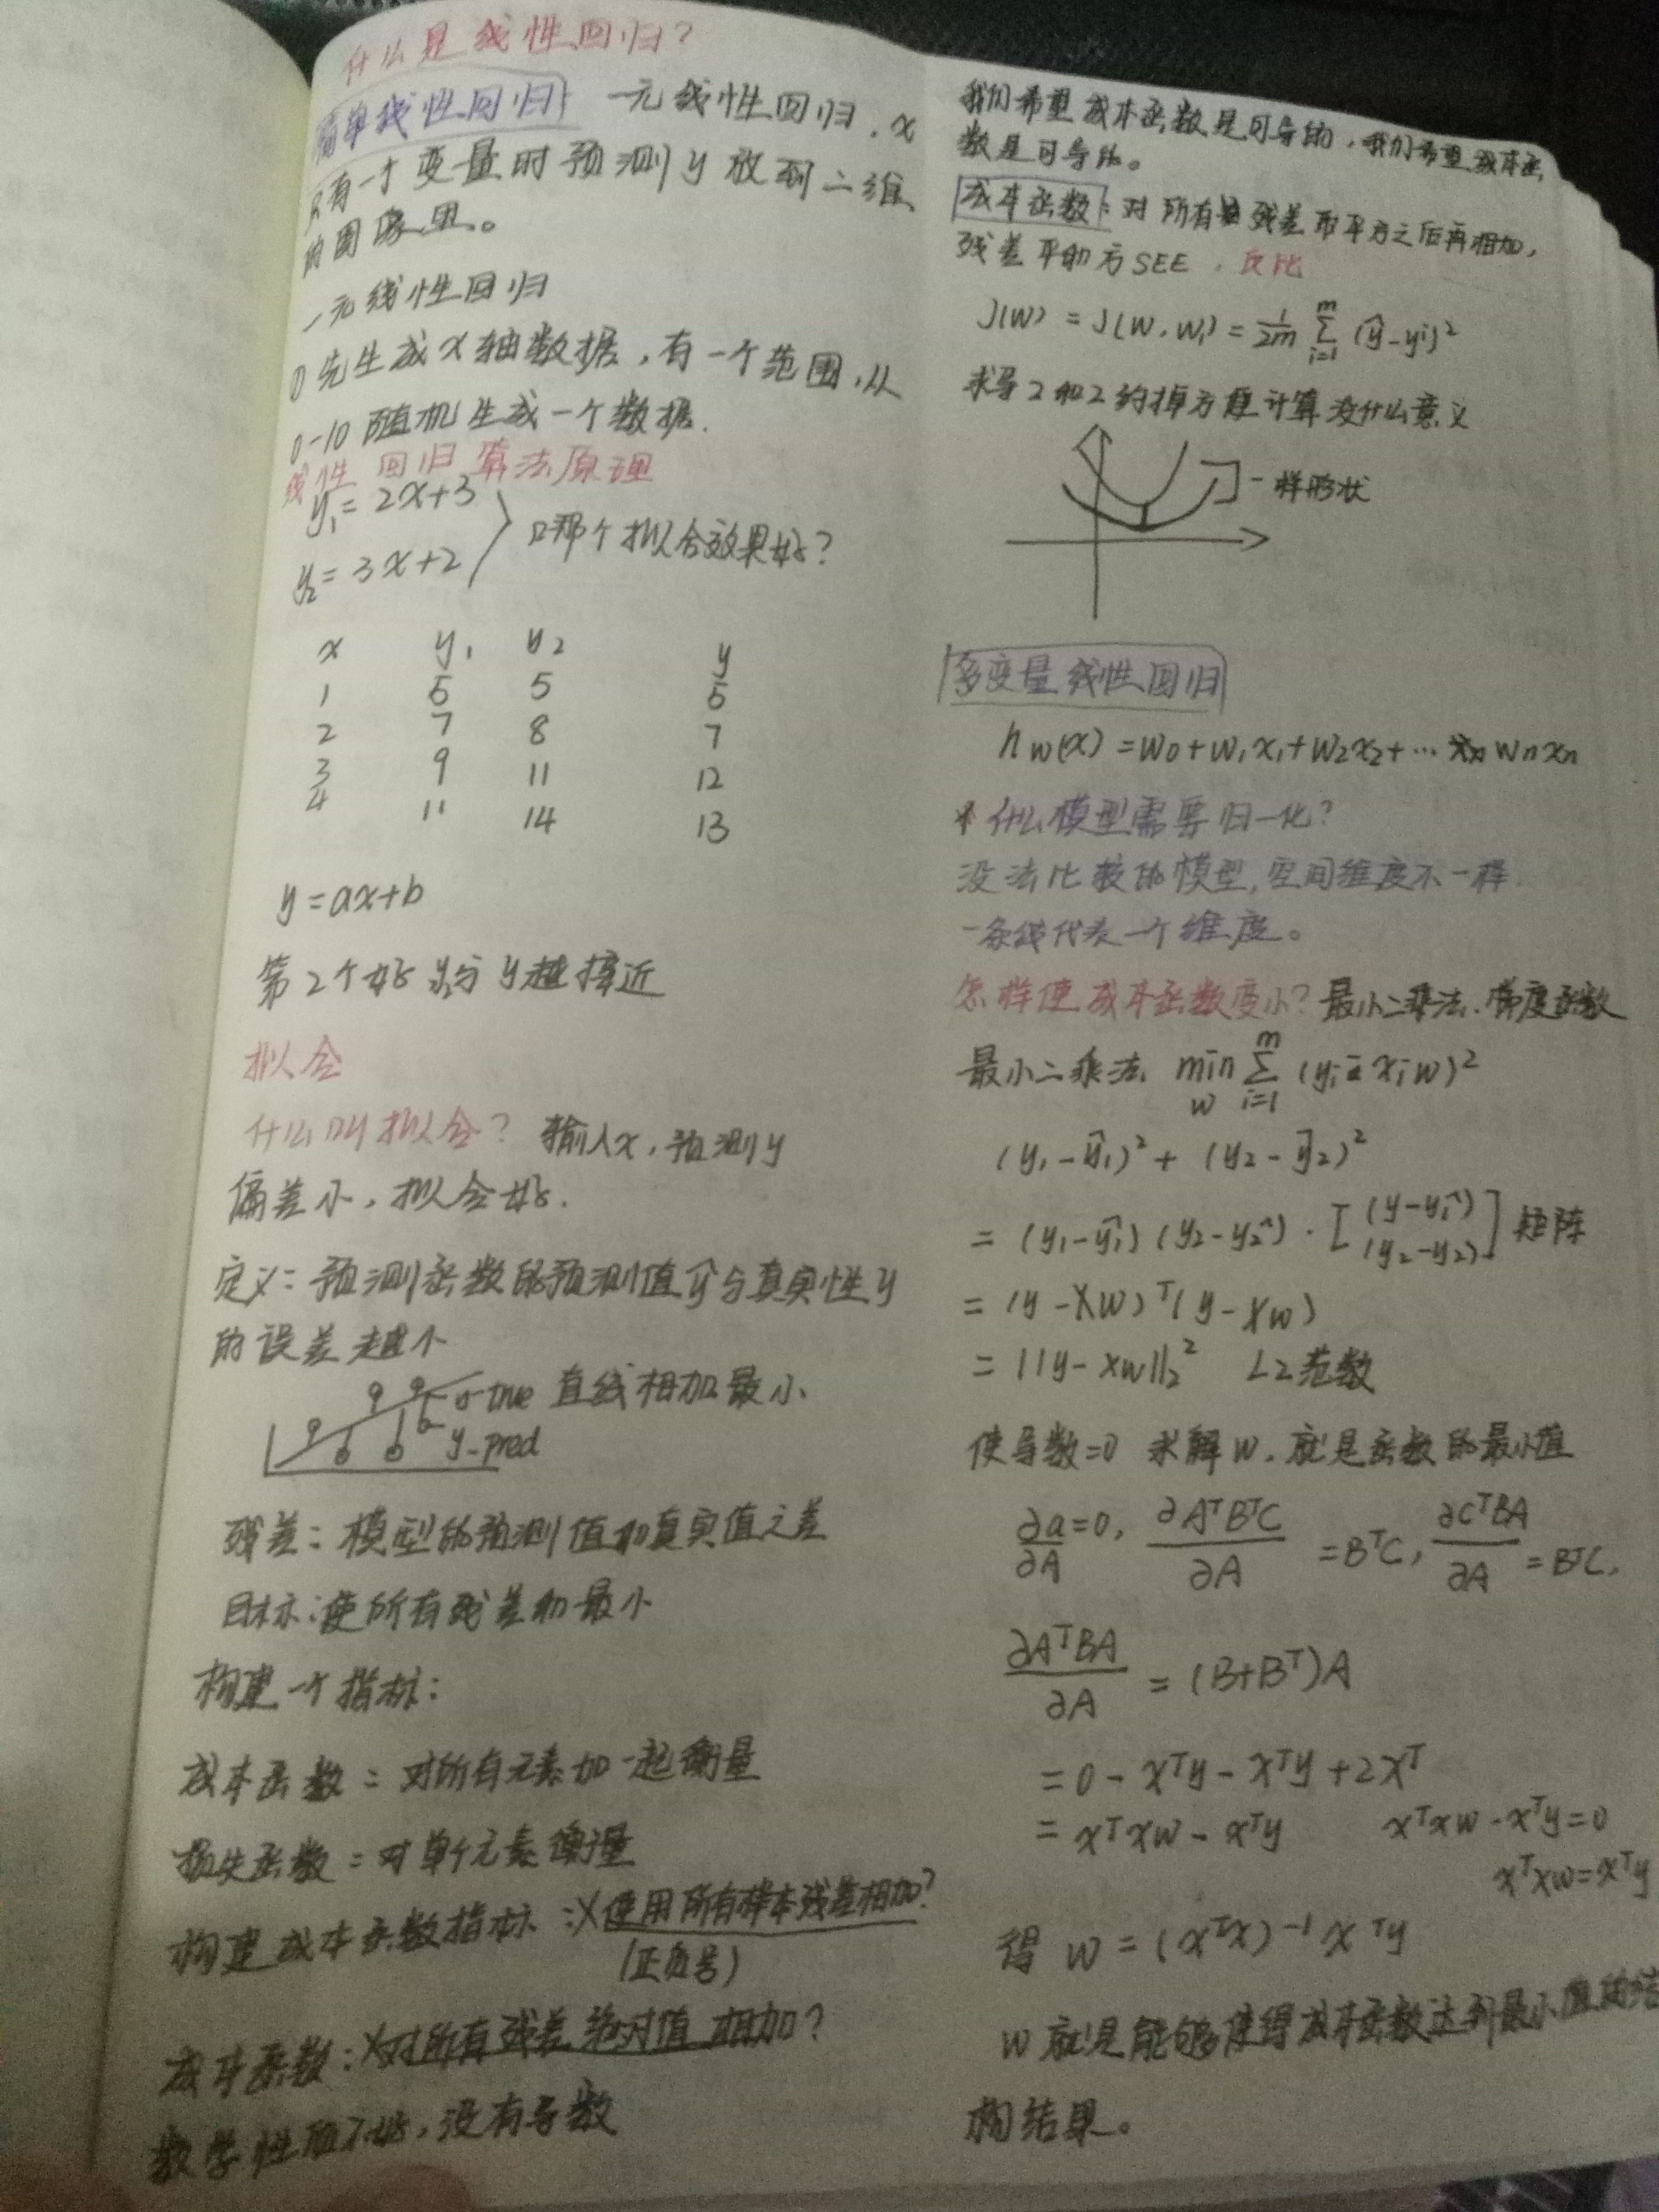 什么是线性回归?
简单线性回归: 一元线性回归.x
只有一个变量时预测y放到二维
的图像里。
一元线性回归
① 先生成x轴数据,有一个范围,从
0-10随机生成一个数据.
线性回归算法原理
y₁=2x+3
口那个拟合效果好?
y₂=3x+2
x y₁ y₂ y
1 5 5 5
2 7 8 7
3 9 11 12
4 11 14 13
y=ax+b
第2个好 y₂与y越接近
拟合
什么叫拟合? 输入x,预测y
偏差小,拟合好.
定义:预测函数的预测值ŷ与真实性y
的误差越小
y-true 直线相加最小
y-pred
残差:模型的预测值和真实值之差
目标:使所有残差和最小
构建一个指标:
成本函数:对所有元素加一起衡量
损失函数:对单个元素衡量
构建成本函数指标:X使用所有样本残差相加?
(正负号)
成本函数:X对所有残差绝对值相加?
数学性质不好,没有导数
我们希望成本函数是可导的,我们希望成本函
数是可导的。
成本函数:对所有残差取平方之后再相加,
残差平和方SEE,反比
J(W)=J(W.W₁)=1/2m Σ(i=1→m)(ŷ-yⁱ)²
求导2和2约掉方便计算没什么意义
一样形状
多变量线性回归
hw(x)=w₀+w₁x₁+w₂x₂+… wnxn
* 什么模型需要归一化?
没法比较的模型,空间维度不一样
一条线代表一个维度。
怎样使成本函数变小?最小二乘法.梯度函数
最小二乘法 min w Σ(i=1→m)(yi-xiw)²
(y₁-ŷ₁)²+(y₂-ŷ₂)²
=(y₁-ŷ₁)(y₂-y₂^)·[(y-y₁^) (y₂-y₂)] 矩阵
=(y-Xw)ᵀ(y-Xw)
=||y-xw||₂² L2范数
使导数=0 求解w.就是函数的最小值
∂a/∂A=0, ∂AᵀBᵀC/∂A=BᵀC, ∂CᵀBA/∂A=BᵀC,
∂AᵀBA/∂A=(B+Bᵀ)A
=0-xᵀy-xᵀy+2xᵀ
=xᵀxw-xᵀy xᵀxw-xᵀy=0
xᵀxw=xᵀy
得 w=(xᵀx)⁻¹xᵀy
w就是能够使得成本函数达到最小值的结
构结果。